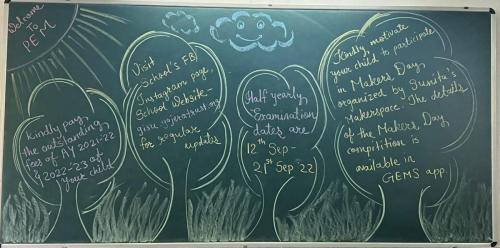 Welcome
To
PEM
Kindly pay
the outstanding
fees of AY 2021-22
& 2022-23 of
your child
Visit
School's FB/
Instagram page,
School Website-
for regular
updates
Half yearly
Examination
dates are
12th Sep-
21st Sep '22
Kindly motivate
your child to participate
in Makers Day,
organized by Sunita's
Makerspace. The details
of the Makers Day
competition is
available in
GEMS app.